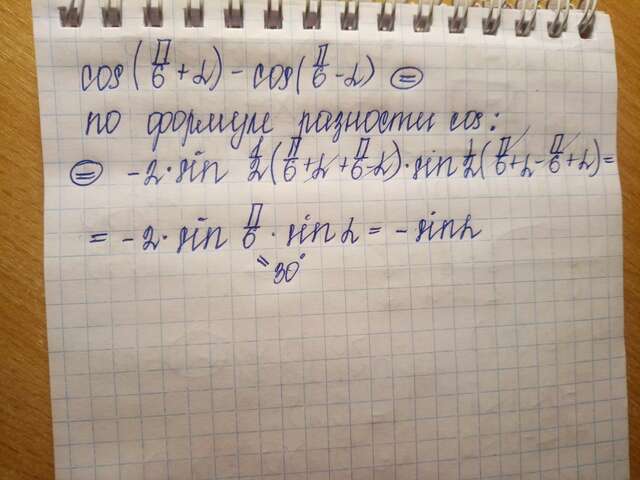 cos(π/6 + α) - cos(π/6 - α) ⊜
по формуле разности cos:
⊜ -2·sin 1/2(π/6 + α + π/6 - α)·sin 1/2(π/6 + α - π/6 + α) =
= -2·sin π/6 · sin α = - sin α
= 30°